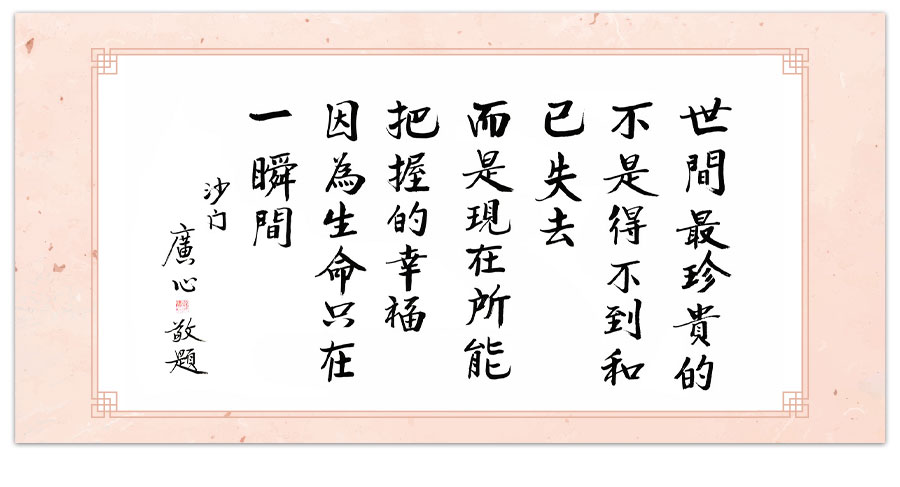 世間最珍貴的
不是得不到和
已失去
而是現在所能
把握的幸福
因為生命只在
一瞬間
沙门
廣心
敬題